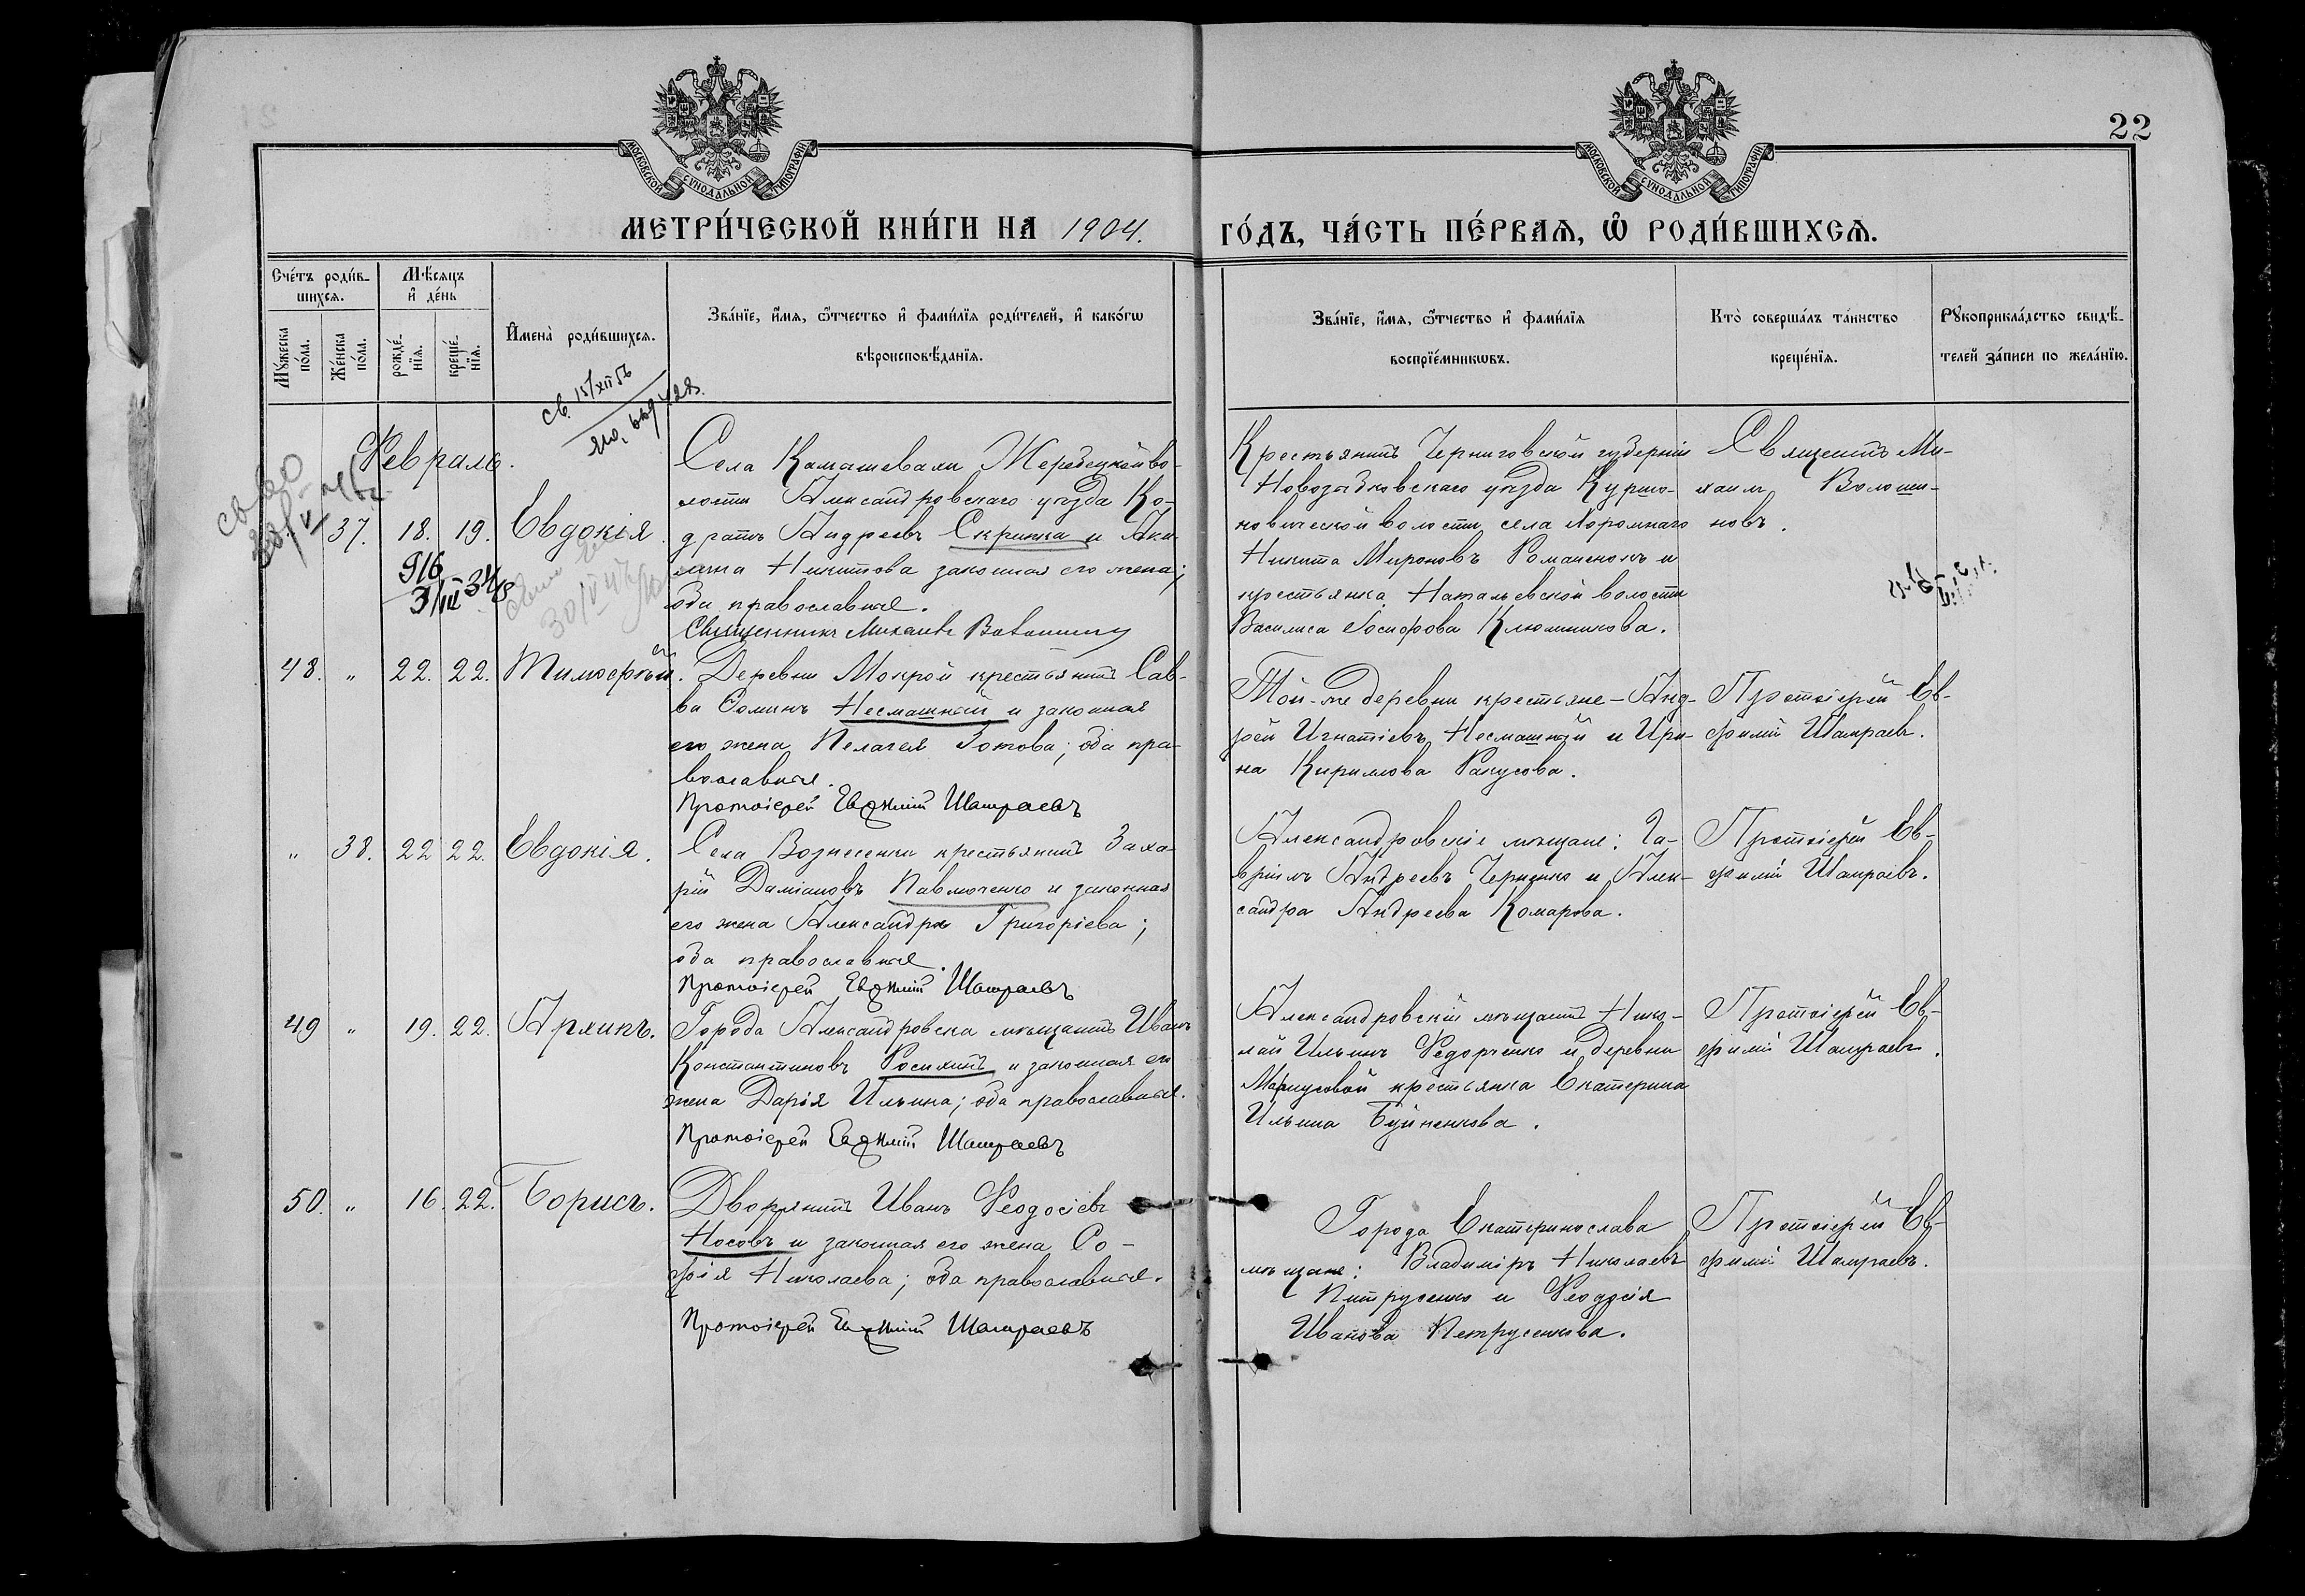 22
МОСКОВСКОЙ СУНОДАЛЬНОЙ ТИПОГРАФІИ
МОСКОВСКОЙ СУНОДАЛЬНОЙ ТИПОГРАФІИ
МЕТРИ́ЧЕСКОЙ КНИ́ГИ НА 1904.
ГО́ДЪ, ЧА́СТЬ ПЕ́РВАѦ, Ѡ҆ РОДИ́ВШИХСѦ.
Сче́тъ роди́в-
шихсѧ.
Мꙋ́жеска
по́ла.
Же́нска
по́ла.
Мѣ́сѧцъ
и҆ де́нь
рожде́-
нїѧ.
креще́-
нїѧ.
И҆мена̀ роди́вшихсѧ.
Зва́нїе, и҆́мѧ, ѻ҆́тчество и҆ фами́лїѧ роди́телей, и҆ како́гѡ
вѣроисповѣ́данїѧ.
Зва́нїе, и҆́мѧ, ѻ҆́тчество и҆ фами́лїѧ
воспрїе́мникѡвъ.
Кто̀ соверша́лъ та́инство
креще́нїѧ.
Рꙋкоприкла́дство свидѣ́-
телей за́писи по жела́нїю.
св. 15/XII 56
Февраль.
37. 18. 19. Евдокія.
Села Камышевахи Жеребецкой во-
лости Александровскаго уѣзда Ко-
дратъ Андреевъ Скрипка и Аки-
лина Никитова законная его жена;
оба православные.
Священникъ Михаилъ
Крестьянинъ Черниговской губерніи
Новозыбковскаго уѣзда
волости, села
Никита Мироновъ Романенокъ и
крестьянка Натальевской волости
Василиса Іосифова Клюшникова.
Священникъ Ми-
хаилъ Волоши-
новъ.
916
48. " 22. 22. Тимофей.
Деревни Мокрой крестьянинъ Сав-
ва Ѳоминъ Несмашный и законная
его жена Пелагея Зотова; оба пра-
вославные.
Протоіерей Евѳимій Шамраевъ
Той-же деревни крестьяне - Анд-
рей Игнатіевъ Несмашный и Ири-
на Кирилова Ракусова.
Протоіерей Ев-
фимій Шамраевъ.
" 38. 22 22. Евдокія.
Села Вознесенки крестьянинъ Заха-
рій Даміановъ Павлюченко и законная
его жена Александра Григоріева;
оба православные.
Протоіерей Евѳимій Шамраевъ
Александровскіе мѣщане: Га-
вріилъ Андреевъ Черненко и Алек-
сандра Андреева Комарова.
Протоіерей Ев-
фимій Шамраевъ.
49 " 19. 22. Архипъ.
Города Александровска мѣщанинъ Иванъ
Константиновъ Росихинъ и законная его
жена Дарія Ильина; оба православные.
Протоіерей Евѳимій Шамраевъ
Александровскій мѣщанинъ Нико-
лай Ильинъ Федорченко и деревни
Маркусовой крестьянка Екатерина
Ильина Буйненкова.
Протоіерей Ев-
фимій Шамраевъ.
50. " 16. 22. Борисъ.
Дворянинъ Иванъ Феодосіевъ
Носовъ и законная его жена Со-
фія Николаева; оба православные.
Протоіерей Евѳимій Шамраевъ
Города Екатеринослава
мѣщане: Владиміръ Николаевъ
Петрусенко и Феодосія
Иванова Петрусенкова.
Протоіерей Ев-
фимій Шамраевъ.